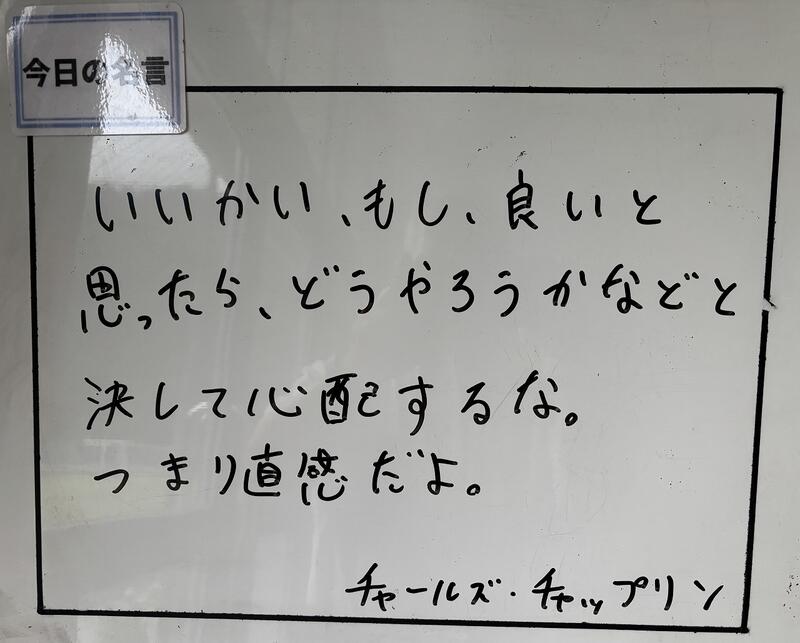 今日の名言
いいかい、もし、良いと
思ったら、どうやろうかなどと
決して心配するな。
つまり直感だよ。
チャールズ・チャップリン